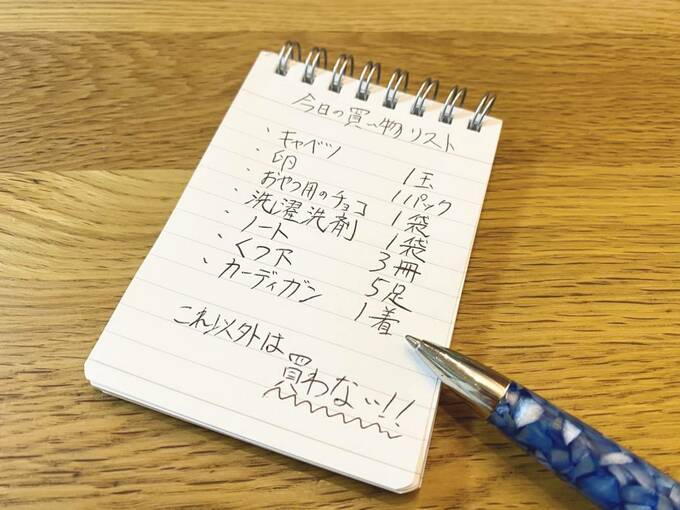 今日の買い物リスト
・キャベツ 1玉
・卵 1パック
・おやつ用のチョコ 1袋
・洗濯洗剤 1袋
・ノート 3冊
・くつ下 5足
・カーディガン 1着
これ以外は買わない!!